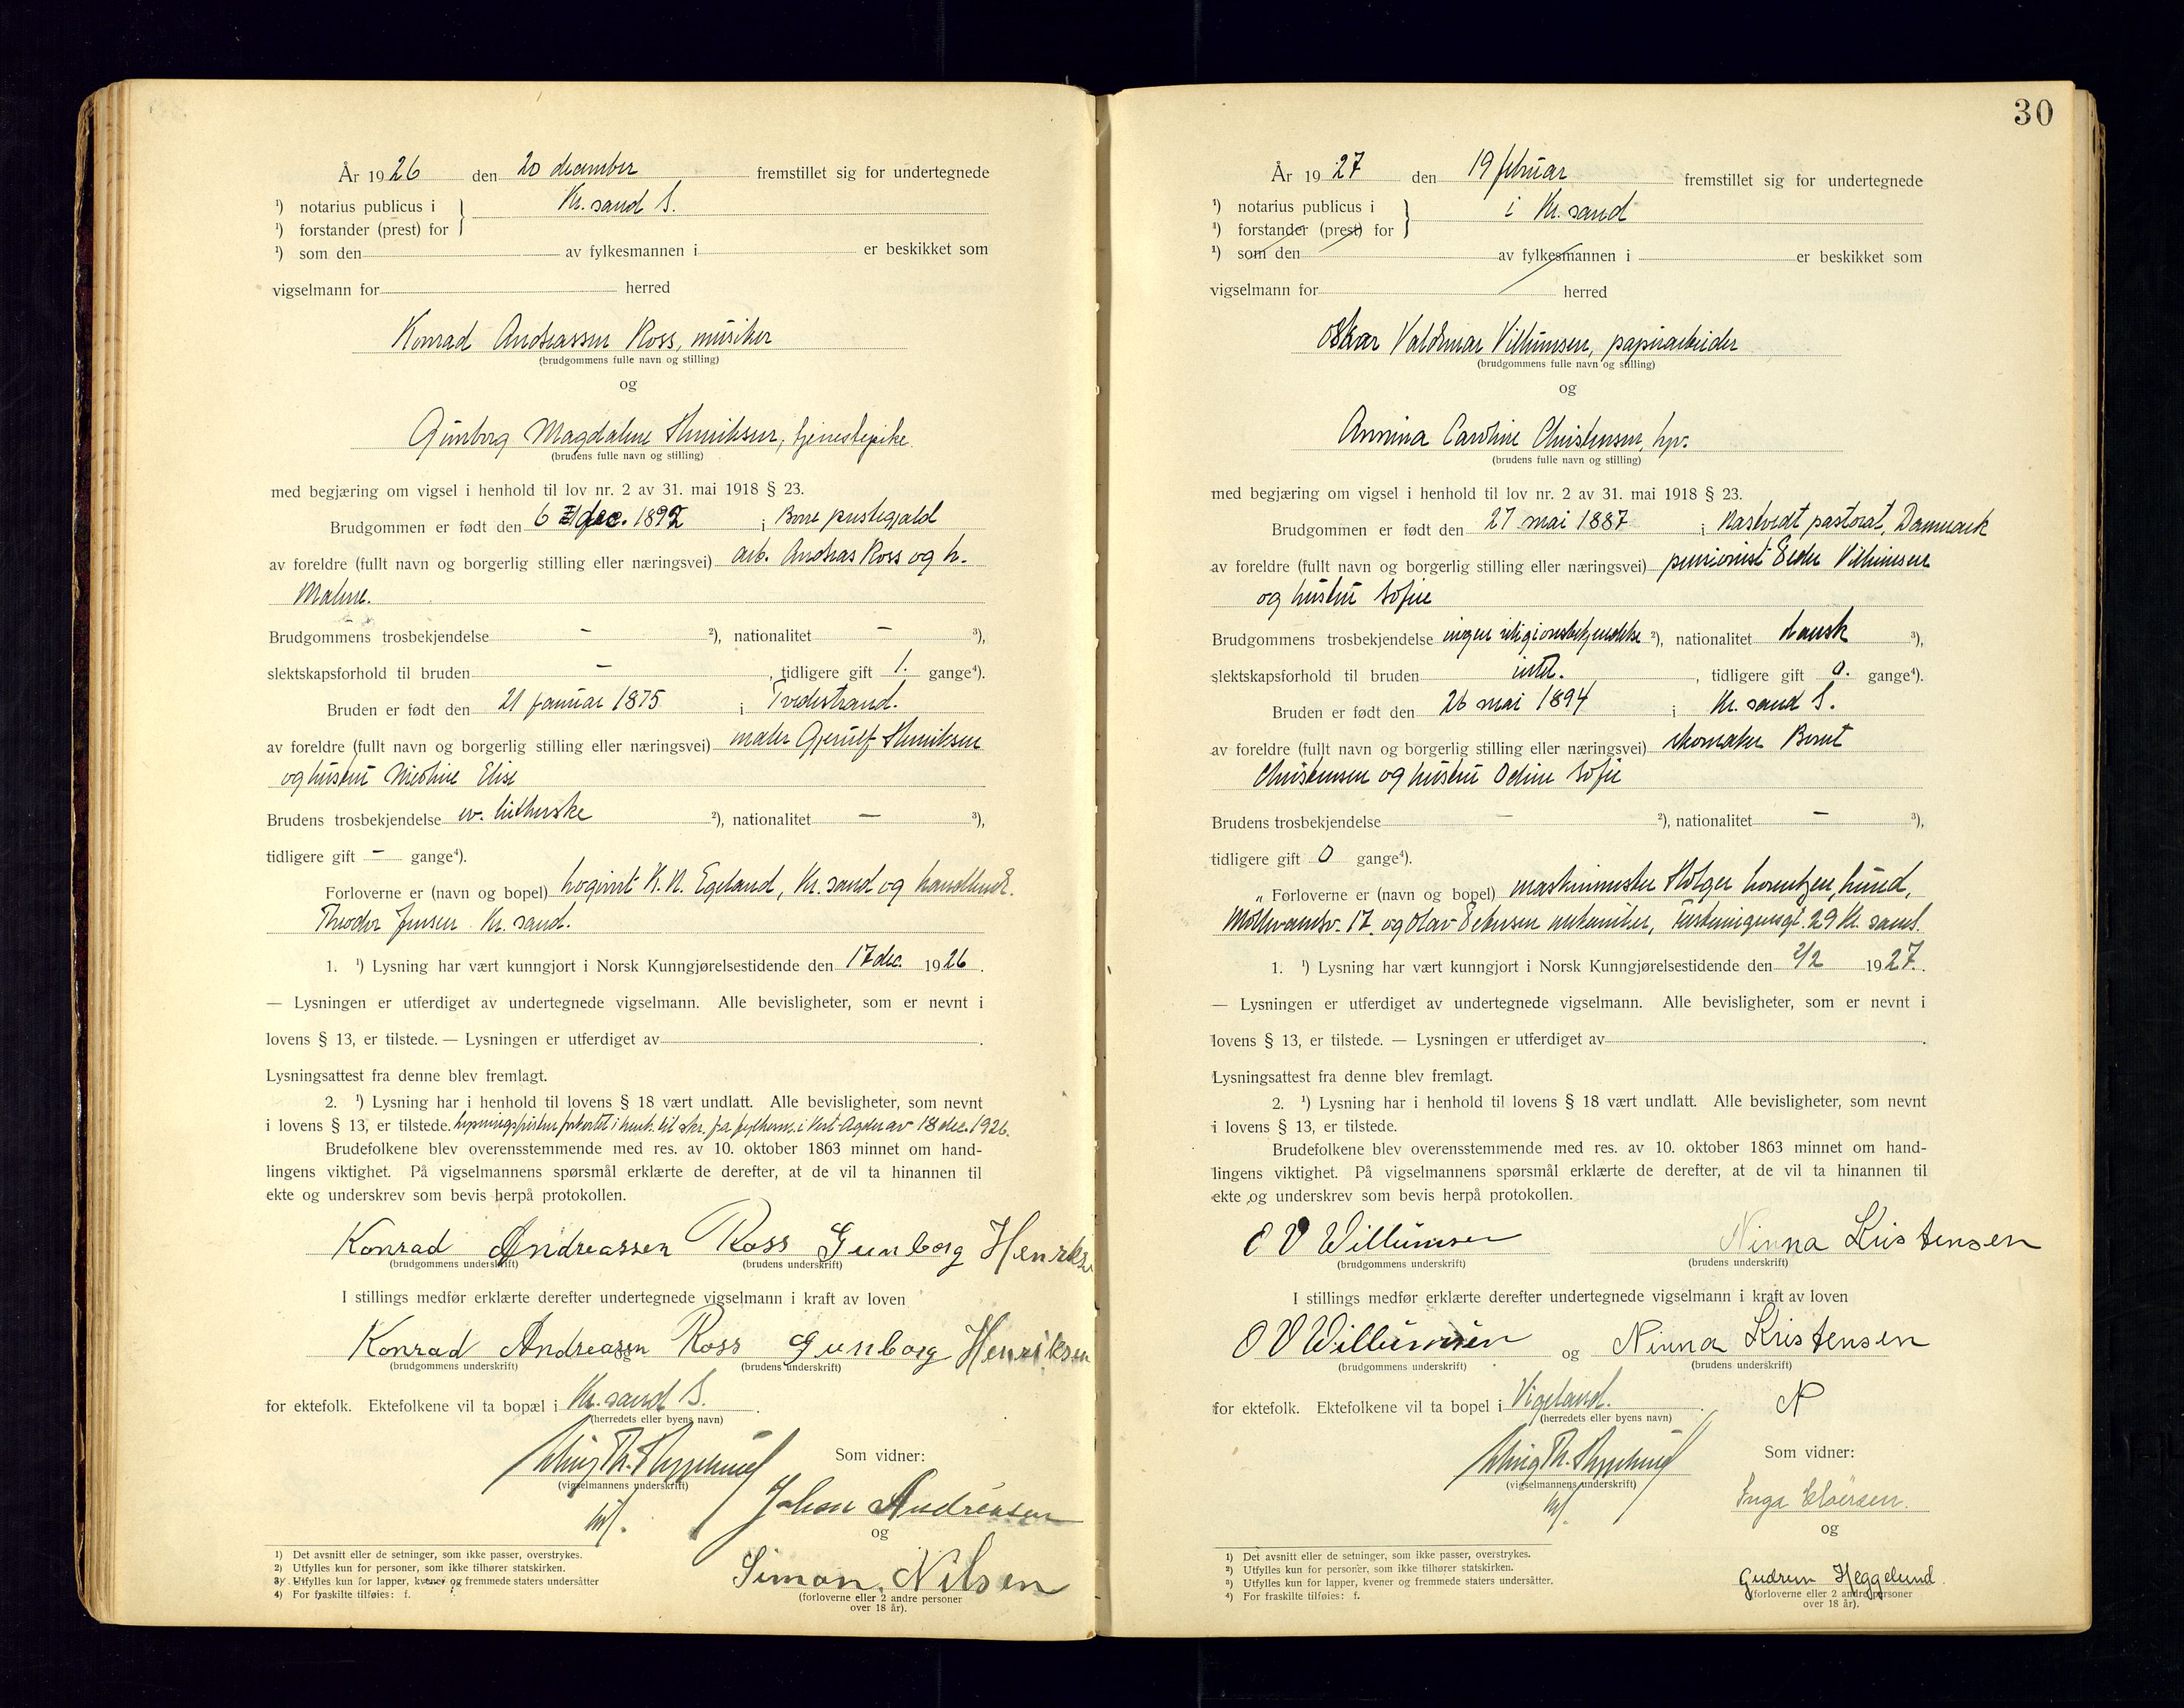 År 1926 den 20 december fremstillet sig for undertegnede
¹) notarius publicus i } Kr. sand S.
¹) forstander (prest) for
¹) som den av fylkesmannen i er beskikket som
vigselmann for herred
Konrad Andreassen Ross, musiker
(brudgommens fulle navn og stilling)
og
Gunborg Magdalene Henriksen, tjenestepike
(brudens fulle navn og stilling)
med begjæring om vigsel i henhold til lov nr. 2 av 31. mai 1918 § 23.
Brudgommen er født den 6 dec. 1892 i Borre prestegjald
av foreldre (fullt navn og borgerlig stilling eller næringsvei) arb. Andreas Ross og h.
Malene.
Brudgommens trosbekjendelse - ²), nationalitet - ³),
slektskapsforhold til bruden - , tidligere gift 1. gange⁴).
Bruden er født den 21 januar 1875 i Tvedestrand.
av foreldre (fullt navn og borgerlig stilling eller næringsvei) maler Gjerulf Henriksen
og hustru Nicoline Elise
Brudens trosbekjendelse ev. lutherske ²), nationalitet — ³),
tidligere gift - gange⁴).
Forloverne er (navn og bopel) K. N. Egeland, Kr. sand og
Theodor Jensen Kr. sand.
1. ¹) Lysning har vært kunngjort i Norsk Kunngjørelsestidende den 17 dec. 1926.
— Lysningen er utferdiget av undertegnede vigselmann. Alle bevisligheter, som er nevnt i
lovens § 13, er tilstede. — Lysningen er utferdiget av .
Lysningsattest fra denne blev fremlagt.
2. ¹) Lysning har i henhold til lovens § 18 vært undlatt. Alle bevisligheter, som nevnt
i lovens § 13, er tilstede. Lysningsfristen forkortet i henh. til skr. fra fylkesm. i Vest-Agder av 18 dec. 1926.
Brudefolkene blev overensstemmende med res. av 10. oktober 1863 minnet om hand-
lingens viktighet. På vigselmannens spørsmål erklærte de derefter, at de vil ta hinannen til
ekte og underskrev som bevis herpå protokollen.
Konrad Andreassen Ross Gunborg Henrikse
(brudgommens underskrift) (brudens underskrift)
I stillings medfør erklærte derefter undertegnede vigselmann i kraft av loven
Konrad Andreassen Ross og Gunborg Henriksen
(brudgommens underskrift) (brudens underskrift)
for ektefolk. Ektefolkene vil ta bopæl i Kr. sand S. .
(herredets eller byens navn)
Som vidner:
(vigselmannens underskrift)
Johan Andreasen
og
Simon Nilsen
(forloverne eller 2 andre personer
over 18 år).
1) Det avsnitt eller de setninger, som ikke passer, overstrykes.
2) Utfylles kun for personer, som ikke tilhører statskirken.
3) Utfylles kun for lapper, kvener og fremmede staters undersåtter
4) For fraskilte tilføies: f.
30
År 1927 den 19 februar fremstillet sig for undertegnede
¹) notarius publicus i } i Kr. sand
¹) forstander (prest) for
¹) som den av fylkesmannen i er beskikket som
vigselmann for herred
Oskar Valdemar Villumsen, papirarbeider
(brudgommens fulle navn og stilling)
og
Annina Caroline Christensen, hpr.
(brudens fulle navn og stilling)
med begjæring om vigsel i henhold til lov nr. 2 av 31. mai 1918 § 23.
Brudgommen er født den 27 mai 1887 i pastorat, Danmark
av foreldre (fullt navn og borgerlig stilling eller næringsvei) pensionist Peder Villumsen
og hustru Sofie
Brudgommens trosbekjendelse ingen religionsbekjendelse ²), nationalitet dansk ³),
slektskapsforhold til bruden intet. , tidligere gift 0. gange⁴).
Bruden er født den 26 mai 1894 i Kr. sand S.
av foreldre (fullt navn og borgerlig stilling eller næringsvei) skomaker Bernt
Christensen og hustru Odine Sofie
Brudens trosbekjendelse - ²), nationalitet - ³),
tidligere gift 0 gange⁴).
„ Forloverne er (navn og bopel) maskinmester Holger Lorentzen Lund,
17. og Olav Pedersen mekaniker, 29 Kr. sand.
1. ¹) Lysning har vært kunngjort i Norsk Kunngjørelsestidende den 2/2 1927.
— Lysningen er utferdiget av undertegnede vigselmann. Alle bevisligheter, som er nevnt i
lovens § 13, er tilstede. — Lysningen er utferdiget av .
Lysningsattest fra denne blev fremlagt.
2. ¹) Lysning har i henhold til lovens § 18 vært undlatt. Alle bevisligheter, som nevnt
i lovens § 13, er tilstede.
Brudefolkene blev overensstemmende med res. av 10. oktober 1863 minnet om hand-
lingens viktighet. På vigselmannens spørsmål erklærte de derefter, at de vil ta hinannen til
ekte og underskrev som bevis herpå protokollen.
O V Willumsen Ninna Kristensen
(brudgommens underskrift) (brudens underskrift)
I stillings medfør erklærte derefter undertegnede vigselmann i kraft av loven
O V Willumsen og Ninna Kristensen
(brudgommens underskrift) (brudens underskrift)
for ektefolk. Ektefolkene vil ta bopel i Vigeland. . N
(herredets eller byens navn)
Som vidner:
(vigselmannens underskrift)
Inga
og
Gudrun Heggelund
(forloverne eller 2 andre personer
over 18 år).
1) Det avsnitt eller de setninger, som ikke passer, overstrykes.
2) Utfylles kun for personer, som ikke tilhører statskirken.
3) Utfylles kun for lapper, kvener og fremmede staters undersåtter.
4) For fraskilte tilføies: f.